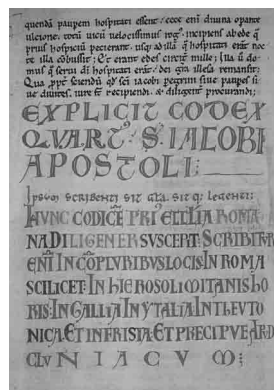 quendā pauperē hospitati essent; ecce enī divina opante
ulcione totū vicū velocissimus rogꝰ incipiens ab ede q̄
prius hospiciū pecierant, usq; ad illā q̄ hospitati erāt noc
te illa cōbussit; Et erant edes circit̄ mille; Illa ū do
mus q̄ servi dī hospitati erāt, dei gr̄a illesa remansit;
Qua ppt̄ sciendū qd̄ sci iacobi peregrini sive paupes si
ve divites, iure st̄ recipiendi, & diligent̄ procurandi;
EXPLICIT CODEX
QVARTꝰ S̄ IACOBI
APOSTOLI:
Ipsum scribenti sit gl̄a sit q; legenti:
HVNC CODICĒ PRIꝰ ECCL̄IA ROMA
NA DILIGENTER SUSCEPIT; SCRIBITUR
ENĪ IN COPLURIBUS LOCIS; IN ROMA
SCILICET; IN HIEROSOLIMITANIS HO
RIS; IN GALLIA IN YTALIA; IN TEUTO
NICA; ET IN FRISIA; ET PRECIPVE APD̄
CLVNIACVM;